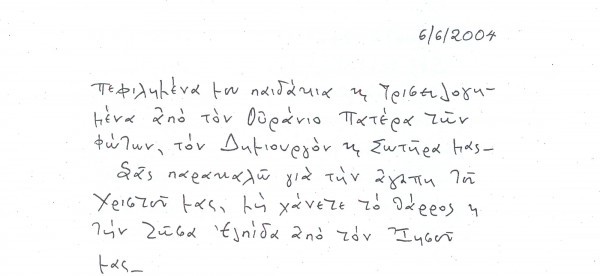 6/6/2004
Πεφιλημένα μου παιδάκια κ Τρισευλογη-
μένα ἀπό τόν Οὐράνιο Πατέρα τῶν
Φώτων, τόν Δημιουργόν κ Σωτῆρα μας_
Σᾶς παρακαλῶ γιά τήν ἀγάπη τοῦ
Χριστοῦ μας, μή χάνετε τό θάρρος κ
τήν ζῶσα ἐλπίδα ἀπό τόν Ἰησοῦ
μας_